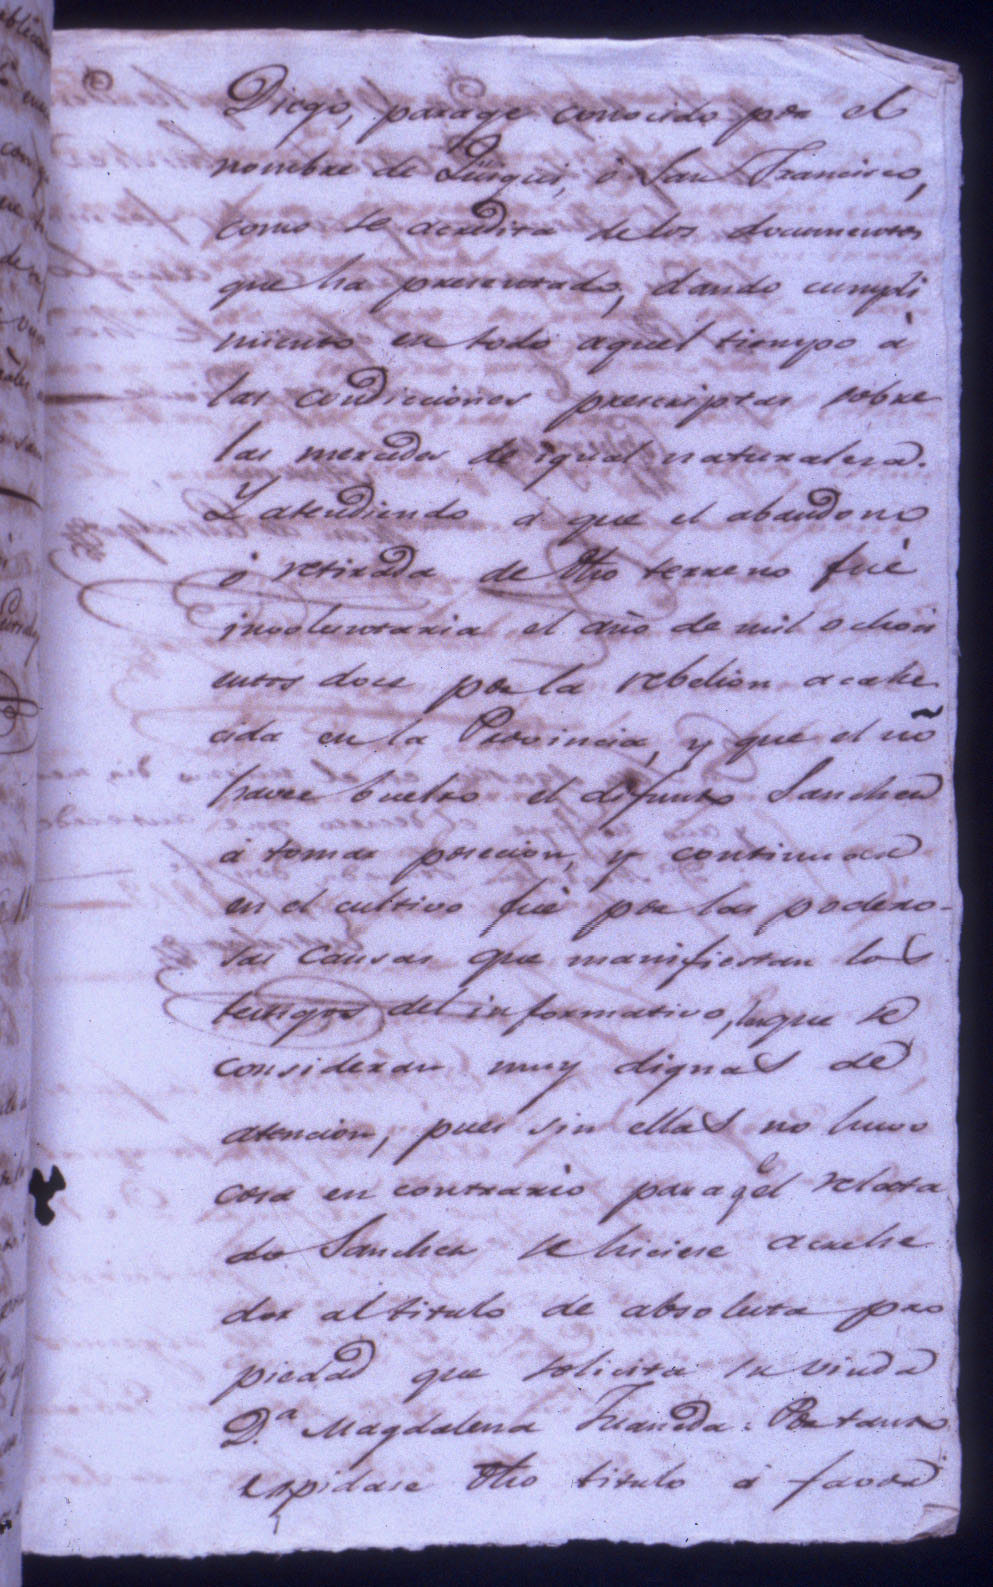 Diego, parage conocido por el
nombre de ó San Francisco,
como se acredita de los documentos
que ha presentado, dando cumpli
miento en todo aquel tiempo á
las condicciones prescriptas sobre
las mercedes de igual naturalesa.
Y atendiendo a que el abandono
ó retirada de dho terreno fué
involuntaria el año de mil ochoci
entos doce por la rebelion acahe
cida en la Provincia, y que el no
haver buelto el difunto Sanchez
á tomar posecion, y continuar
en el cultivo fué por las podero-
sas causas que manifiestan los
testigos del informativo, las que se
consideran muy dignas de
atencion, pues sin ellas no huvo
cosa en contrario para q.e el relata
do Sanchez se hiciese acrehe
dor al titulo de absoluta pro
piedad que solicita su viuda
D.a Magdalena Por tanto
espidase dho titulo á favor